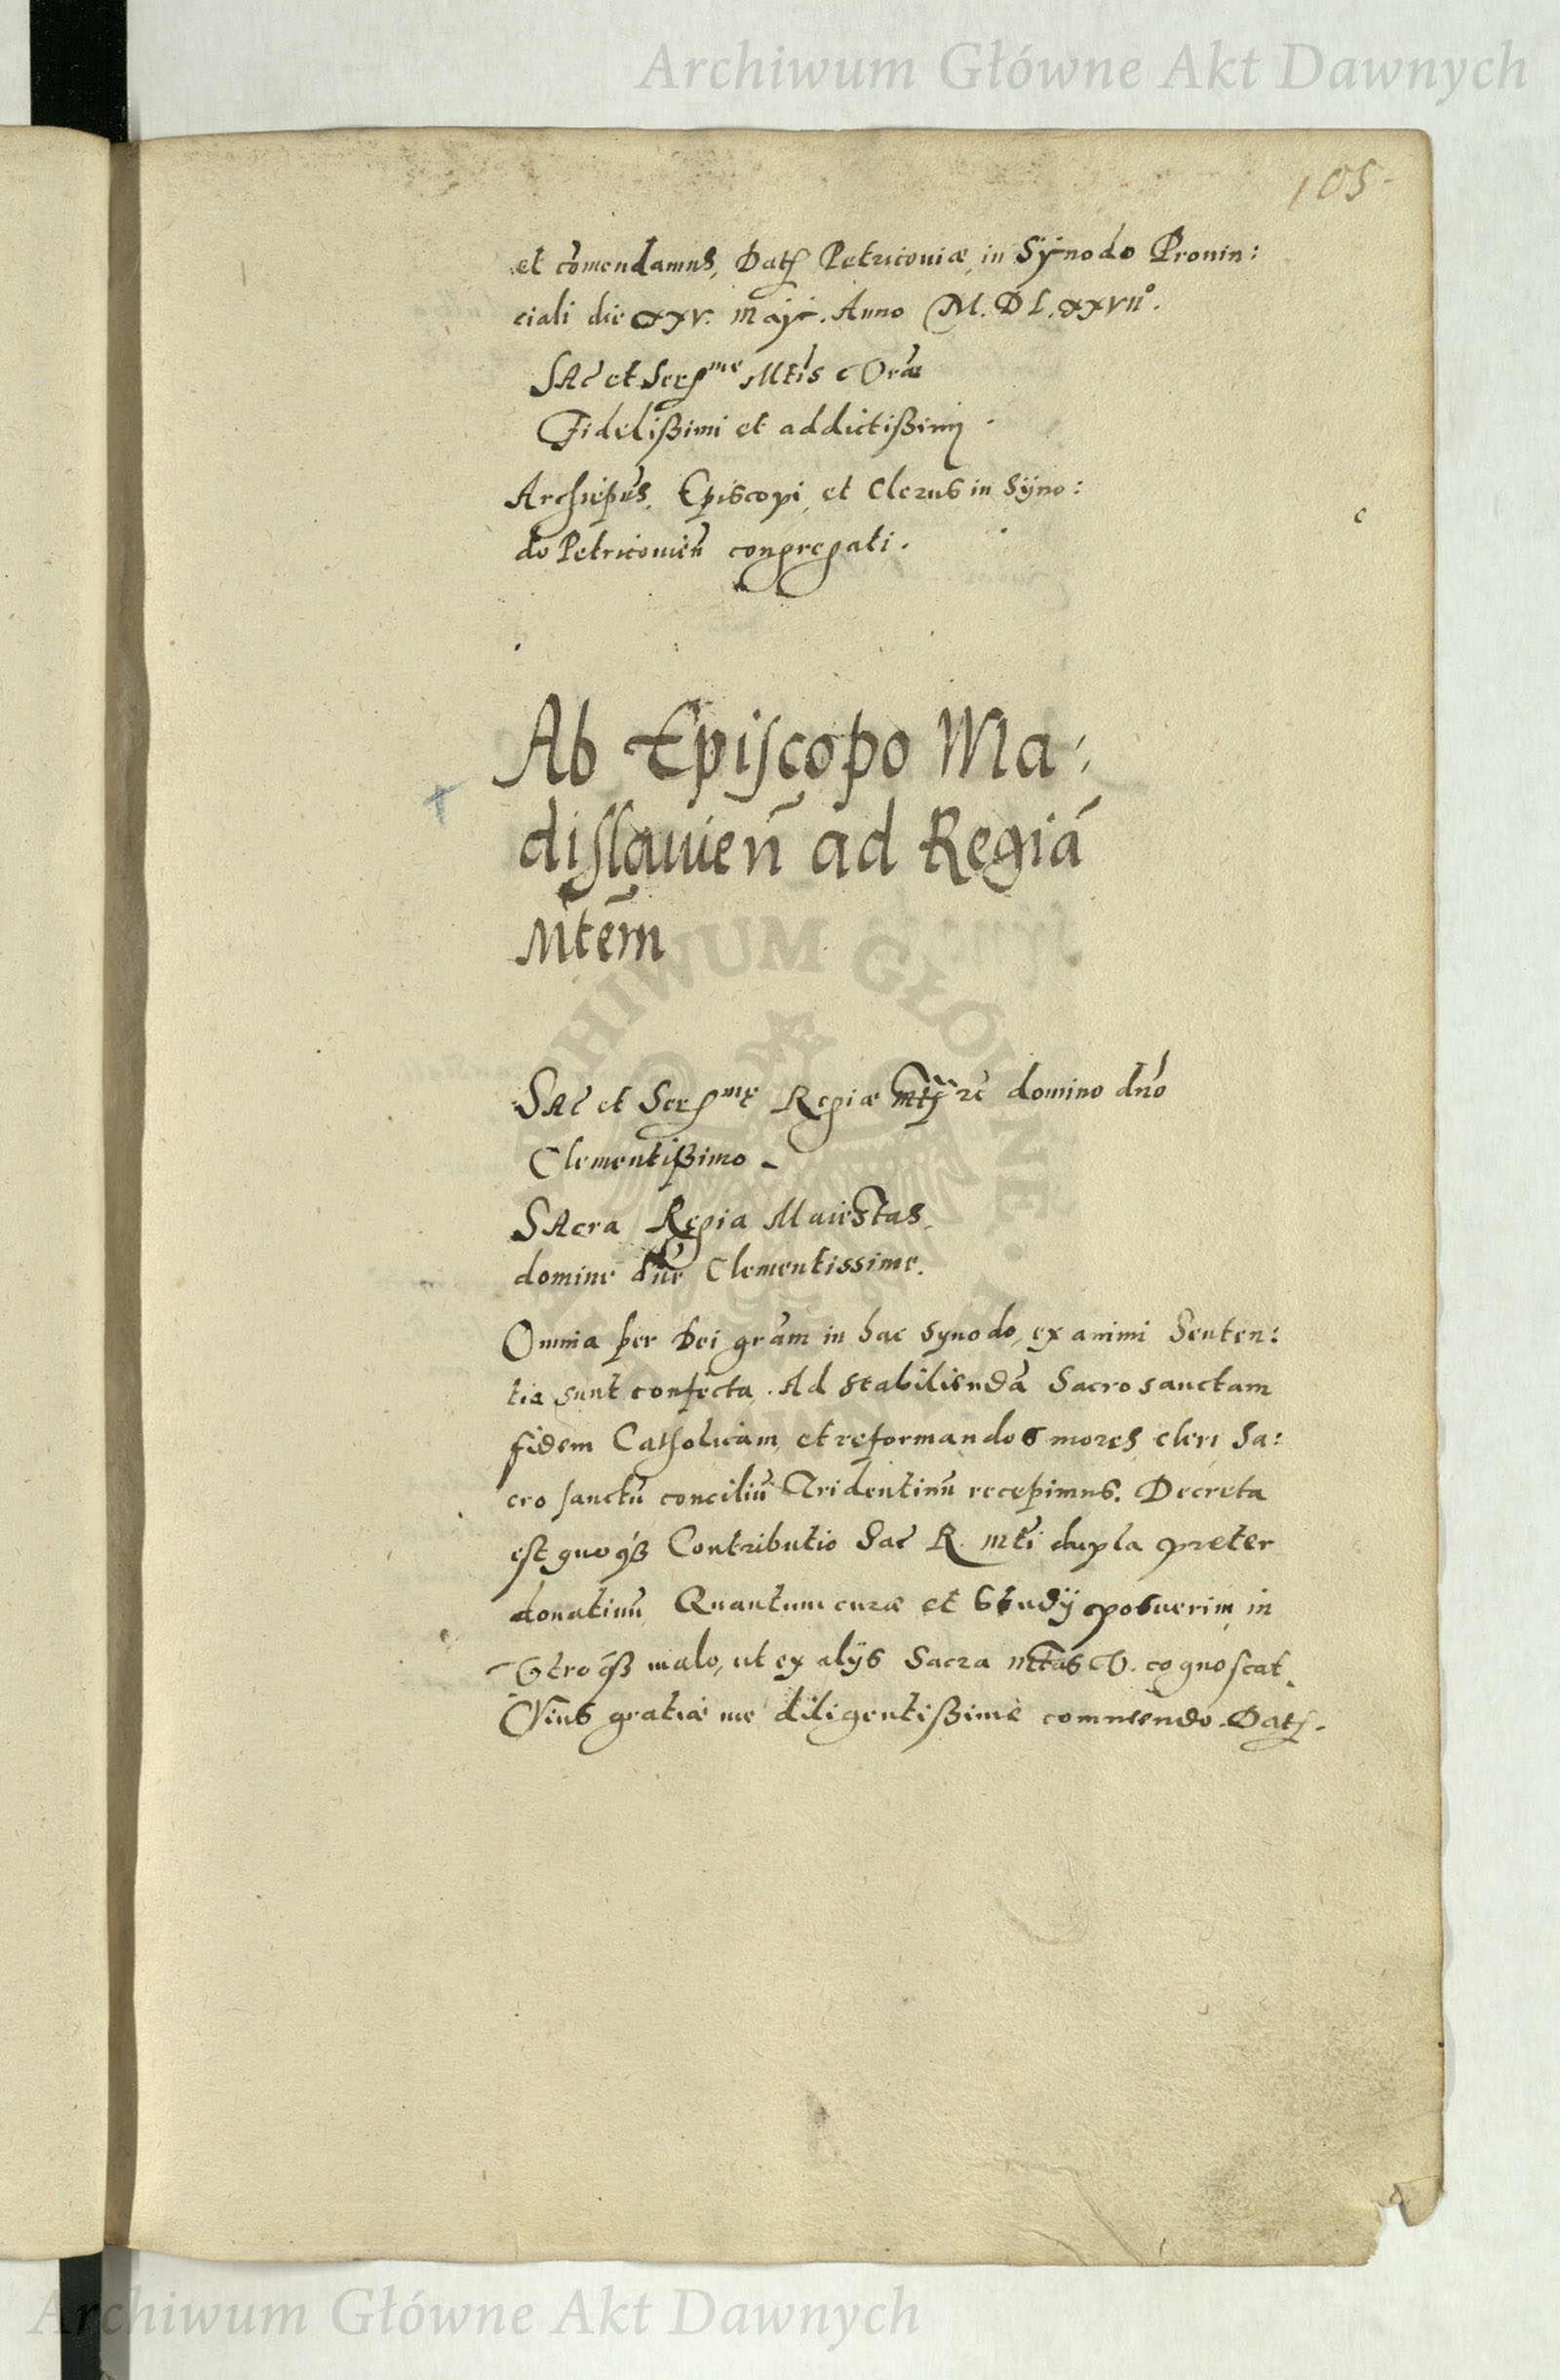 Archiwum Główne Akt Dawnych
105
et cōmendamus, Datꝭ Petricouiæ, in Sÿnodo Prouin:
ciali die XXV. Maÿ. Anno M.D L.XXVIIº.
SAc̄ et Serꝭᵐᵉ Mtis Vræ
Fidelißimi et addictißimj
Archiepūs, Episcopi, et Clerus in Sÿno:
do Petricouieñ congregati.
Ab Episcopo Wla:
dislauieñ ad Regiā
Mtēm
SAc̄ et Serꝭᵐᵉ Regiæ Mtꝭ ꝛc̄ domino dño
Clementißimo
SAcra Regia Maiestas.
domine dñe Clementissime.
Omnia per Dei grām in hac synodo, ex animi Senten:
tia sunt confecta. Ad stabiliendā Sacrosanctam
fidem Catholicam, et reformandos mores cleri Sa:
crosanctū conciliū Tridentinū recepimus. Decreta
est quoqꝫ Contributio Sac̄ R. Mti dupla preter
donatiuū Quantum curæ et Studÿ posuerim, in
Vtroqꝫ malo, ut ex alÿs Sacra Mtas V. cognoscat.
Cuius gratiæ me diligentißimè commendo. Datꝭ.
ARCHIWUM GŁÓWNE
Archiwum Główne Akt Dawnych